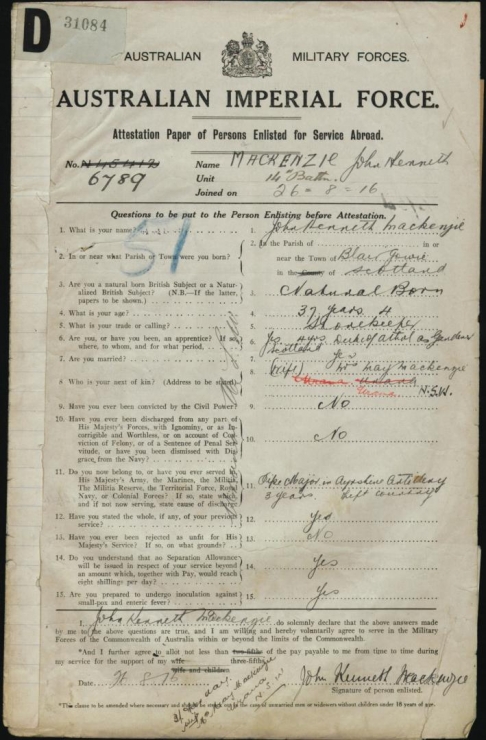 D
31084
AUSTRALIAN MILITARY FORCES.
AUSTRALIAN IMPERIAL FORCE.
Attestation Paper of Persons Enlisted for Service Abroad.
No. N45412 Name MACKENZIE John Kenneth
6789 Unit 14th Battn.
Joined on 26 = 8 = 16
Questions to be put to the Person Enlisting before Attestation.
51
1. What is your name? 1. John Kenneth Mackenzie
2. In or near what Parish or Town were you born? 2. In the Parish of in or
near the Town of Blair Gowrie
in the County of Scotland
3. Are you a natural born British Subject or a Naturalized British Subject? (N.B.—If the latter, papers to be shown.) 3. Natural Born
4. What is your age? 4. 37 years 4
5. What is your trade or calling? 5. Storekeeper
6. Are you, or have you been, an apprentice? If so, where, to whom, and for what period. 6. Yes 4 yrs. Duke of Athol as Gardener Scotland
7. Are you married? 7. Yes
8. Who is your next of kin? (Address to be stated) 8. (Wife) Mrs May Mackenzie
Urana N.S.W.
9. Have you ever been convicted by the Civil Power? 9. No
10. Have you ever been discharged from any part of His Majesty's Forces, with Ignominy, or as Incorrigible and Worthless, or on account of Conviction of Felony, or of a Sentence of Penal Servitude, or have you been Dismissed with Disgrace, from the Navy? 10. No
11. Do you now belong to, or have you ever served in, His Majesty's Army, the Marines, the Militia, The Militia Reserve, the Territorial Force, Royal Navy, or Colonial Forces? If so, state which, and if not now serving, state cause of discharge 11. Pipe Major in Ayrshire Artillery
3 years. Left country
12. Have you stated the whole, if any, of your previous service? 12. Yes
13. Have you ever been rejected as unfit for His Majesty's Service? If so, on what grounds? 13. No
14. Do you understand that no Separation Allowance will be issued in respect of your service beyond an amount which, together with Pay, would reach eight shillings per day? 14. Yes
15. Are you prepared to undergo inoculation against small-pox and enteric fever? 15. Yes
I, John Kenneth Mackenzie, do solemnly declare that the above answers made
by me to the above questions are true, and I am willing and hereby voluntarily agree to serve in the Military
Forces of the Commonwealth of Australia within or beyond the limits of the Commonwealth.
*And I further agree to allot not less than two-fifths of the pay payable to me from time to time during
three-fifths
my service for the support of my wife
wife and children.
Date 8 16 John Kenneth Mackenzie
Signature of person enlisted.
May Mackenzie
Urana
N.S.W
*This clause to be amended where necessary and should be struck out in the case of unmarried men or widowers without children under 18 years of age.